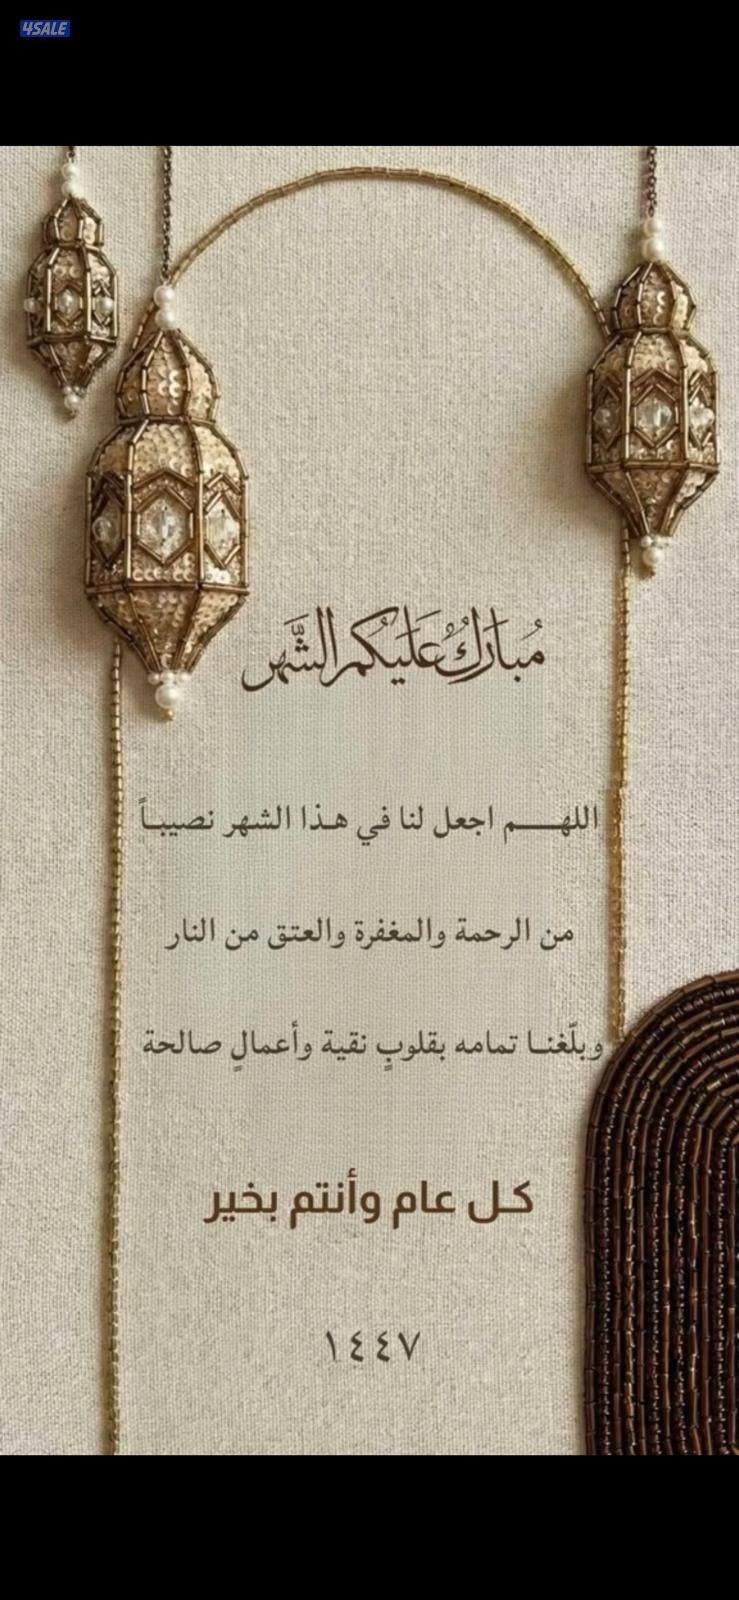 4SALE
مُبَارَكٌ عَلَيْكُم الشَّهر
اللهــــم اجعل لنا في هـذا الشهر نصيبـاً
من الرحمة والمغفرة والعتق من النار
وبلّغنـا تمامه بقلوبٍ نقية وأعمالٍ صالحة
كـل عام وأنتم بخير
١٤٤٧